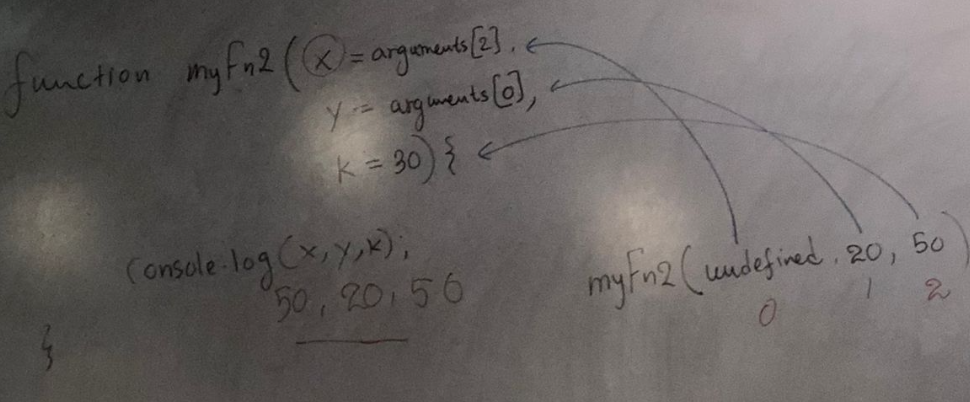 function myFn2(x = arguments[2],
y = arguments[0],
k = 30) {
console.log(x, y, k);
50, 20, 50
}
myFn2(undefined, 20, 50)
0 1 2